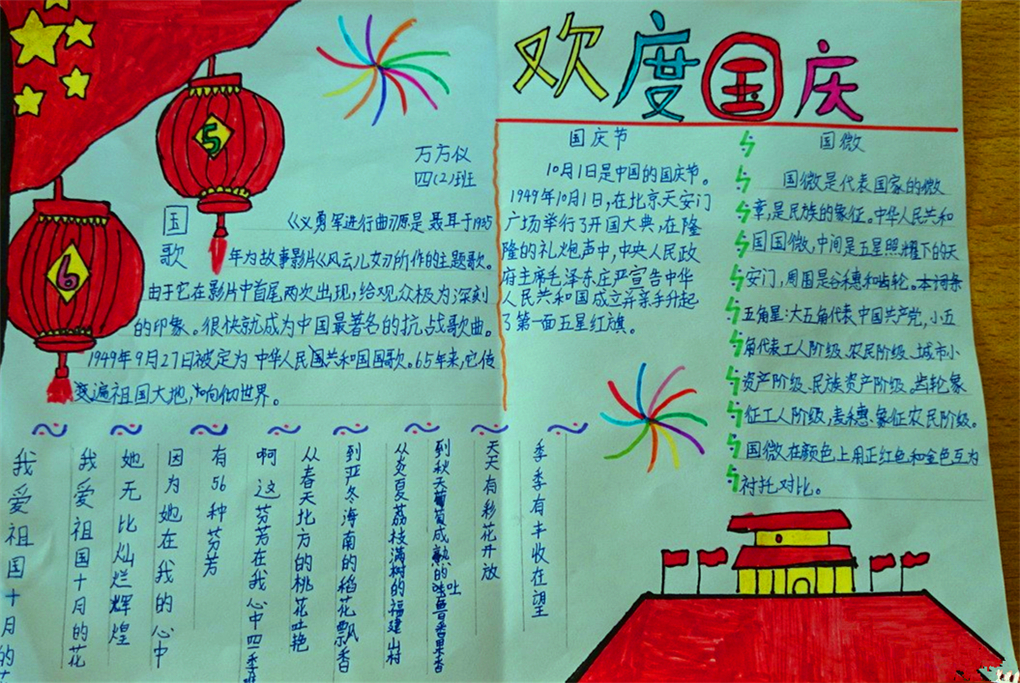 欢度国庆
5
6
万方仪
四(2)班
国歌
《义勇军进行曲》原是聂耳于1935
年为故事影片《风云儿女》所作的主题歌。
由于它在影片中首尾两次出现,给观众极为深刻
的印象。很快就成为中国最著名的抗战歌曲。
1949年9月27日被定为中华人民国共和国国歌。65年来,它传
遍祖国大地,响彻世界。
国庆节
10月1日是中国的国庆节。
1949年10月1日,在北京天安门
广场举行了开国大典,在隆
隆的礼炮声中,中央人民政
府主席毛泽东庄严宣告中华
人民共和国成立并亲手升起
了第一面五星红旗。
国徽
国徽是代表国家的徽
章,是民族的象征。中华人民共和
国国徽,中间是五星照耀下的天
安门,周围是谷穗和齿轮。本词条
五角星:大五角代表中国共产党,小五
角代表工人阶级、农民阶级、城市小
资产阶级、民族资产阶级。齿轮象
征工人阶级,麦穗、象征农民阶级。
国徽在颜色上用正红色和金色互为
衬托对比。
我爱祖国十月的
我爱祖国十月的花
她无比灿烂辉煌
因为她在我的心中
有56种芬芳
啊这芬芳在我心中四季
从春天北方的桃花吐艳
到严冬海南的稻花飘香
从炎夏荔枝满树的福建山村
到秋天葡萄成熟的吐鲁番果香
天天有彩花开放
季季有丰收在望